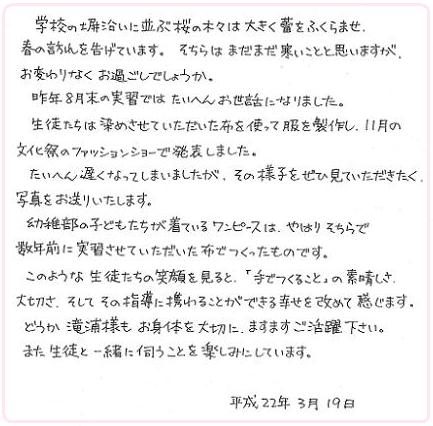 学校の塀沿いに並ぶ桜の木々は大きく蕾をふくらませ、
春の訪れを告げています。そちらはまだまだ寒いことと思いますが、
お変わりなくお過ごしでしょうか。
昨年8月末の実習ではたいへんお世話になりました。
生徒たちは染めさせていただいた布を使って服を製作し、11月の
文化祭のファッションショーで発表しました。
たいへん遅くなってしまいましたが、その様子をぜひ見ていただきたく、
写真をお送りいたします。
幼稚部の子どもたちが着ているワンピースは、やはりそちらで
数年前に実習させていただいた布でつくったものです。
このような生徒たちの笑顔を見ると、「手でつくること」の素晴しさ、
大切さ、そしてその指導に携わることができる幸せを改めて感じます。
どうか滝浦様もお身体を大切に、ますますご活躍下さい。
また生徒と一緒に伺うことを楽しみにしています。
平成22年3月19日